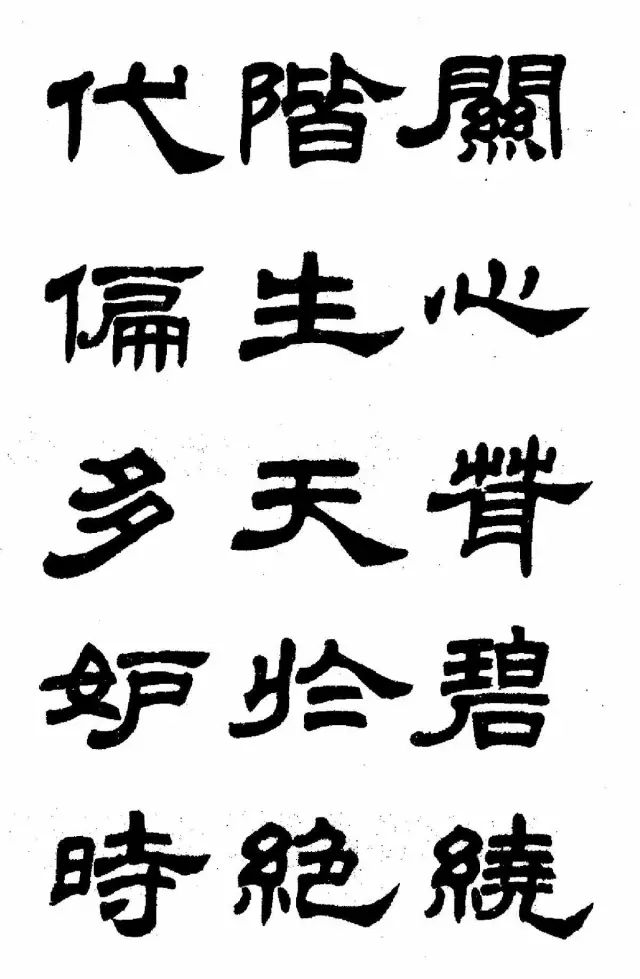 關心草碧繞
階生天於絕
代偏多妒時